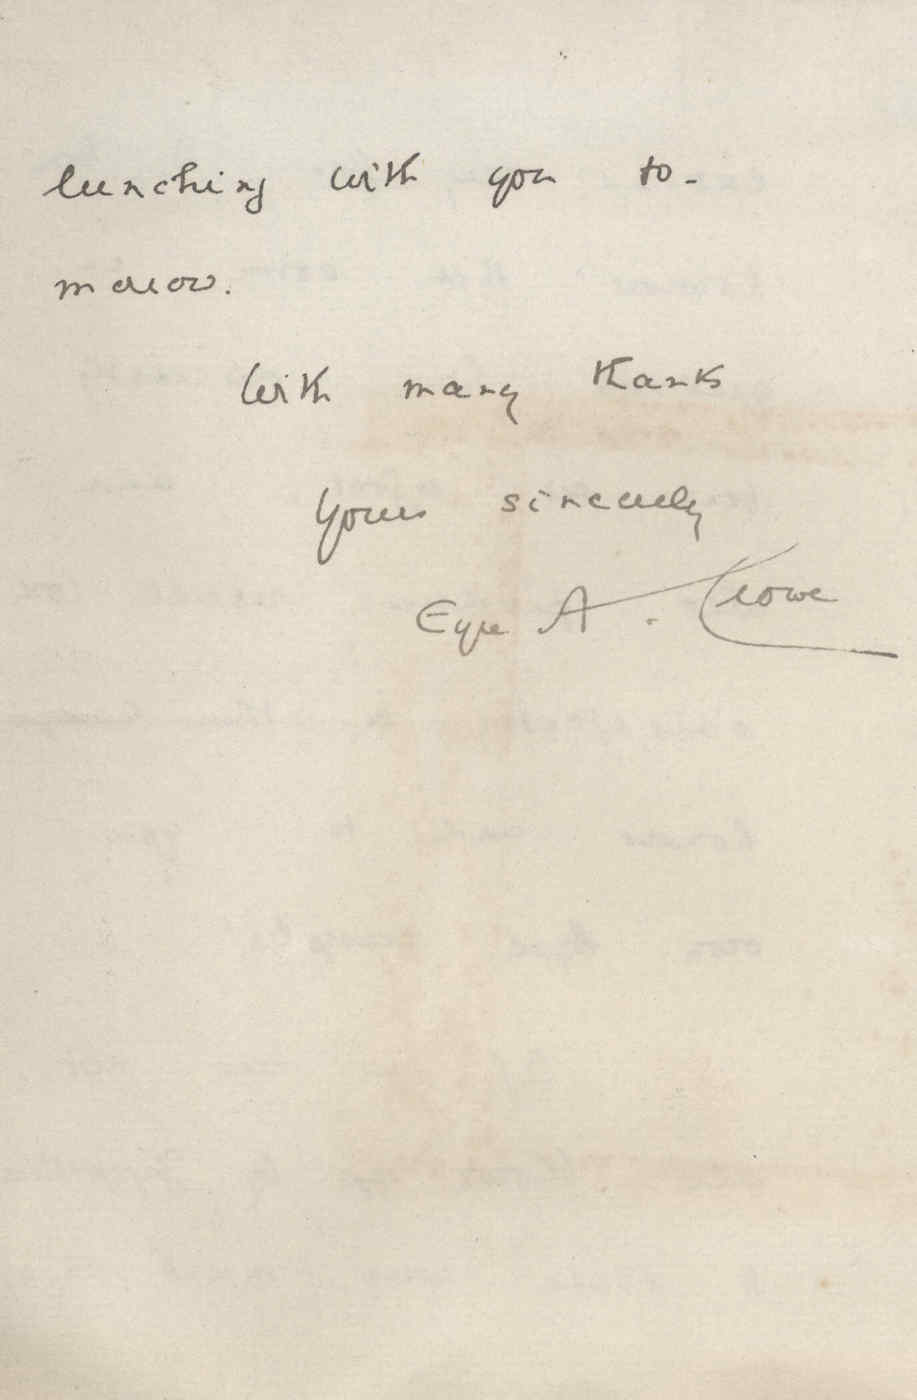 lunching with you to-
morrow.
With many thanks
Yours sincerely
Eyre A. Crowe